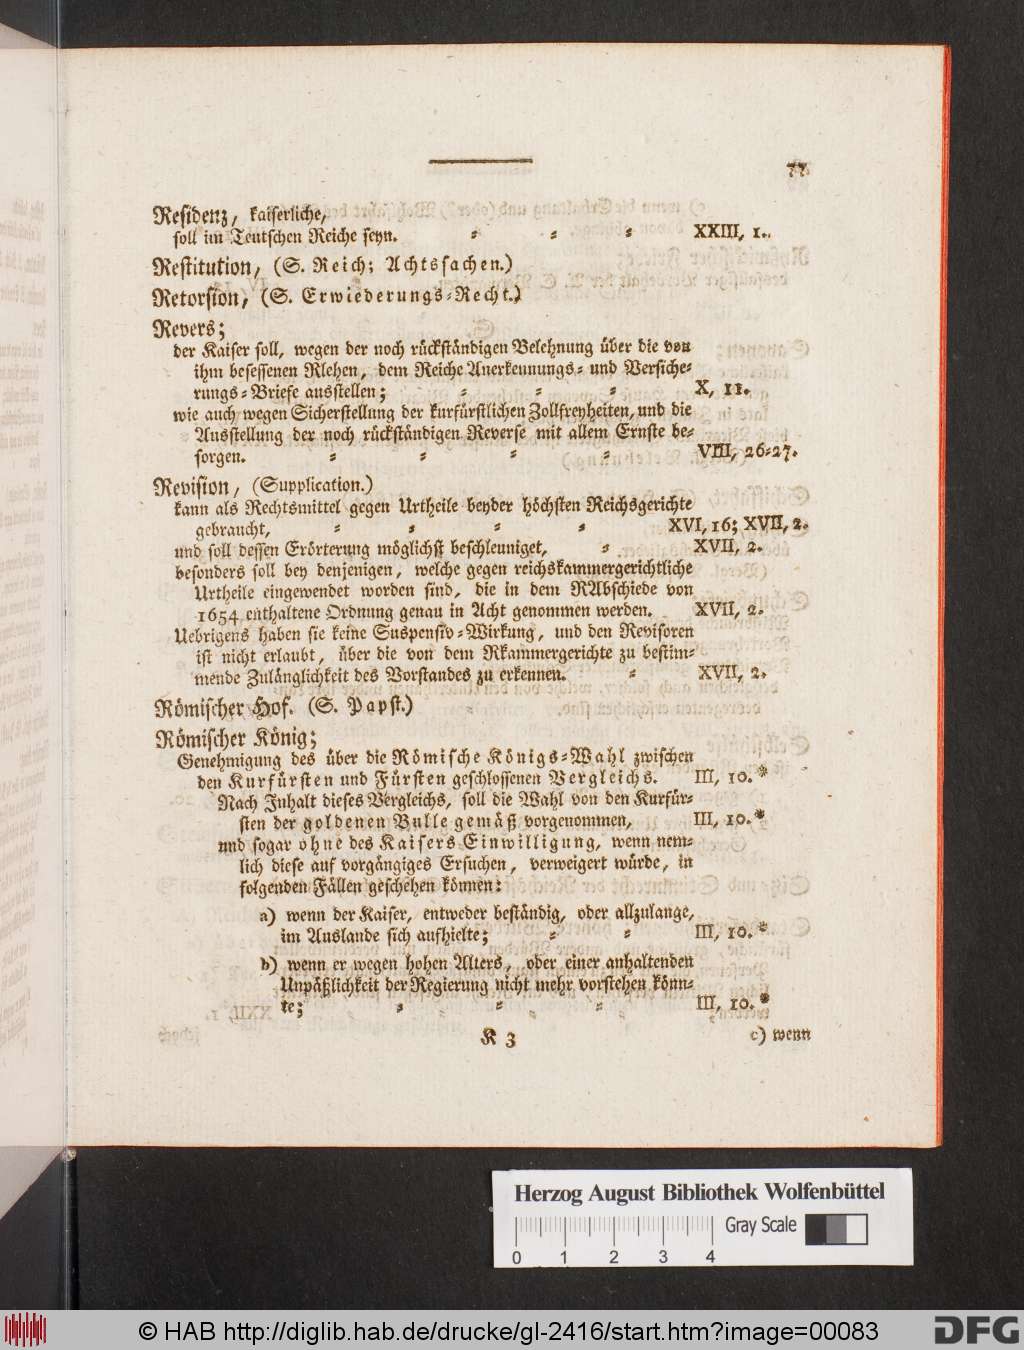 77
Residenz, kaiserliche,
soll im Teutschen Reiche seyn. = = = XXIII, 1.
Restitution, (S. Reich; Achtssachen.)
Retorsion, (S. Erwiederungs=Recht.)
Revers;
der Kaiser soll, wegen der noch rückständigen Belehnung über die von
ihm besessenen Rlehen, dem Reiche Anerkennungs= und Versiche=
rungs=Briefe ausstellen; = = = X, 11.
wie auch wegen Sicherstellung der kurfürstlichen Zollfreyheiten, und die
Ausstellung der noch rückständigen Reverse mit allem Ernste be=
sorgen. = = = = VIII, 26=27.
Revision, (Supplication.)
kann als Rechtsmittel gegen Urtheile beyder höchsten Reichsgerichte
gebraucht, = = = = XVI, 16; XVII, 2.
und soll dessen Erörterung möglichst beschleuniget, = XVII, 2.
besonders soll bey denjenigen, welche gegen reichskammergerichtliche
Urtheile eingewendet worden sind, die in dem RAbschiede von
1654 enthaltene Ordnung genau in Acht genommen werden. XVII, 2.
Uebrigens haben sie keine Suspensiv=Wirkung, und den Revisoren
ist nicht erlaubt, über die von dem Rkammergerichte zu bestim=
mende Zulänglichkeit des Vorstandes zu erkennen. = XVII, 2.
Römischer Hof. (S. Papst.)
Römischer König;
Genehmigung des über die Römische Königs=Wahl zwischen
den Kurfürsten und Fürsten geschlossenen Vergleichs. III, 10.*
Nach Inhalt dieses Vergleichs, soll die Wahl von den Kurfür=
sten der goldenen Bulle gemäß vorgenommen, III, 10.*
und sogar ohne des Kaisers Einwilligung, wenn nem=
lich diese auf vorgängiges Ersuchen, verweigert würde, in
folgenden Fällen geschehen können:
a) wenn der Kaiser, entweder beständig, oder allzulange,
im Auslande sich aufhielte; = = III, 10.*
b) wenn er wegen hohen Alters, oder einer anhaltenden
Unpäßlichkeit der Regierung nicht mehr vorstehen könn=
te; = = = III, 10.*
K 3 c) wenn
Herzog August Bibliothek Wolfenbüttel
Gray Scale
0 1 2 3 4
© HAB http://diglib.hab.de/drucke/gl-2416/start.htm?image=00083
DFG